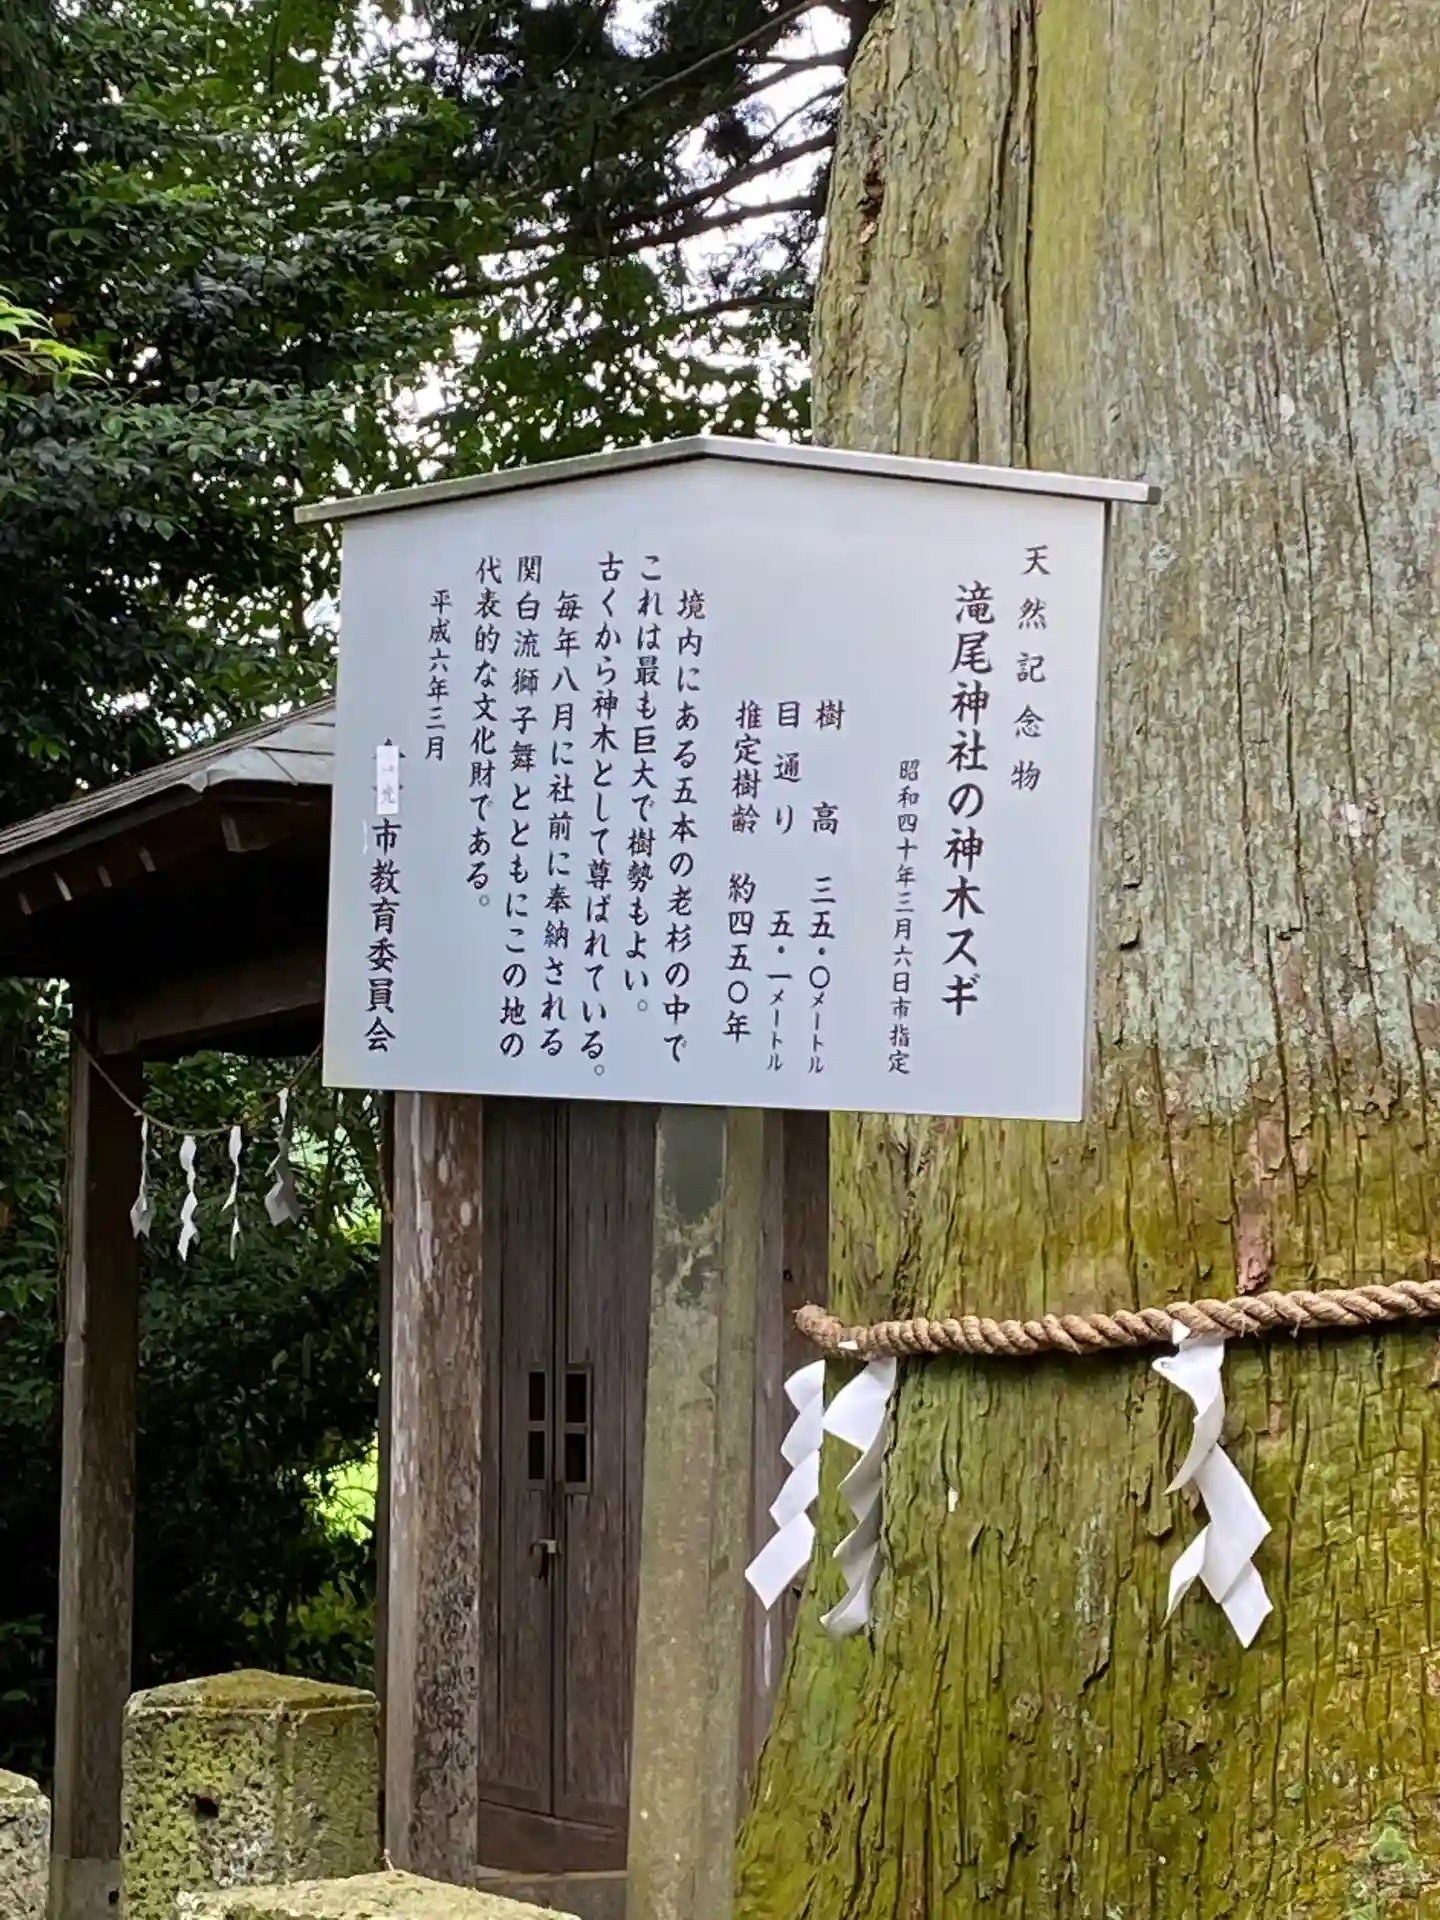 天然記念物
滝尾神社の神木スギ
昭和四十年三月六日市指定
樹高 三五・〇メートル
目通り 五・一メートル
推定樹齢 約四五〇年
境内にある五本の老杉の中で
これは最も巨大で樹勢もよい。
古くから神木として尊ばれている。
毎年八月に社前に奉納される
関白流獅子舞とともにこの地の
代表的な文化財である。
平成六年三月
日光市教育委員会